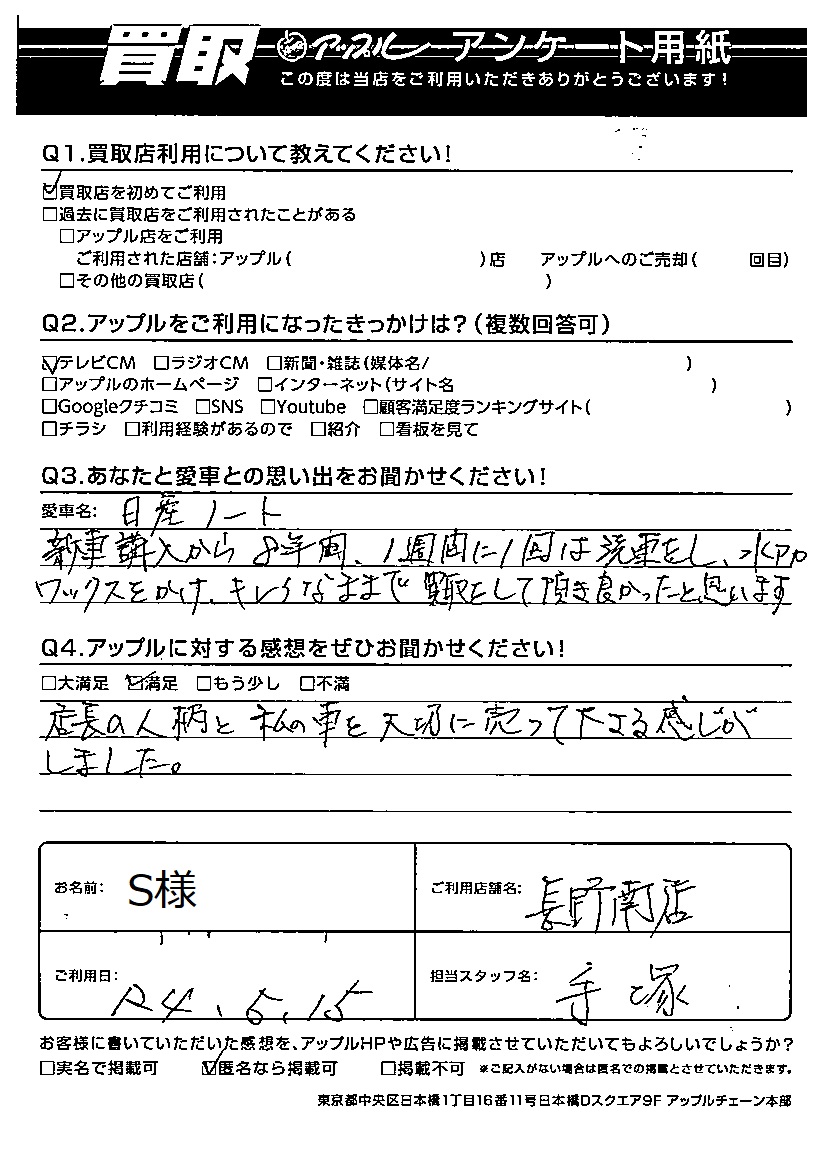 買取 アップル アンケート用紙
この度は当店をご利用いただきありがとうございます！
Q1.買取店利用について教えてください！
☑買取店を初めてご利用
□過去に買取店をご利用されたことがある
□アップル店をご利用
ご利用された店舗：アップル（ ）店 アップルへのご売却（ 回目）
□その他の買取店（ ）
Q2.アップルをご利用になったきっかけは？（複数回答可）
☑テレビCM □ラジオCM □新聞・雑誌（媒体名/ ）
□アップルのホームページ □インターネット（サイト名 ）
□Googleクチコミ □SNS □Youtube □顧客満足度ランキングサイト（ ）
□チラシ □利用経験があるので □紹介 □看板を見て
Q3.あなたと愛車との思い出をお聞かせください！
愛車名： 日産ノート
新車購入から8年間、1週間に1回は洗車をし、水アカ
ワックスをかけ、キレイなままで買取をして頂き良かったと思います
Q4.アップルに対する感想をぜひお聞かせください！
□大満足 ☑満足 □もう少し □不満
店長の人柄と私の車を大切に売って下さる感じが
しました。
お名前： S様
ご利用店舗名： 長野南店
ご利用日： R4.5.15
担当スタッフ名： 手塚
お客様に書いていただいた感想を、アップルHPや広告に掲載させていただいてもよろしいでしょうか？
□実名で掲載可 ☑匿名なら掲載可 □掲載不可 ※ご記入がない場合は匿名での掲載とさせていただきます。
東京都中央区日本橋1丁目16番11号日本橋Dスクエア9F アップルチェーン本部